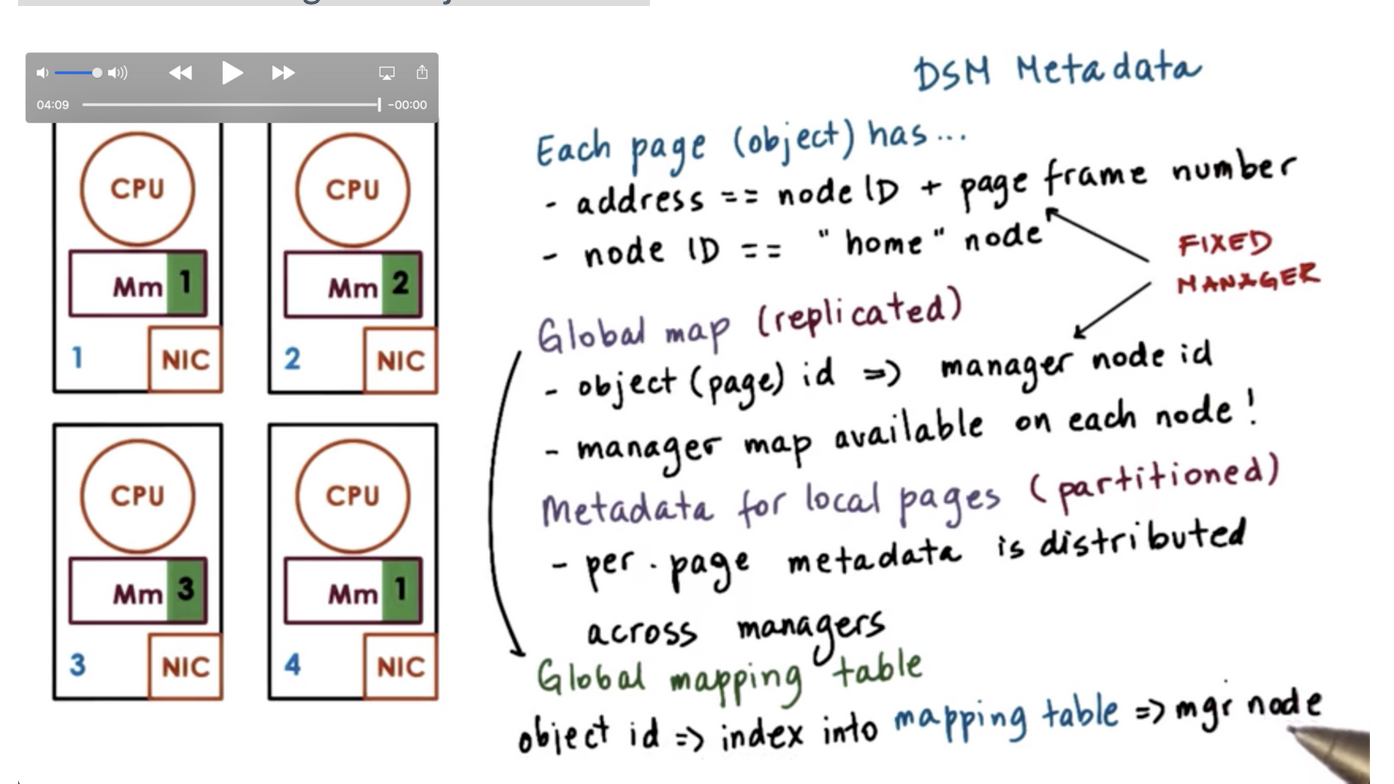 04:09
-00:00
CPU
Mm 1
1
NIC
CPU
Mm 2
2
NIC
CPU
Mm 3
3
NIC
CPU
Mm 1
4
NIC
DSM Metadata
Each page (object) has...
- address == node ID + page frame number
- node ID == "home" node
FIXED
MANAGER
Global map (replicated)
- object (page) id => manager node id
- manager map available on each node!
Metadata for local pages (partitioned)
- per-page metadata is distributed
across managers
Global mapping table
object id => index into mapping table => mgr node